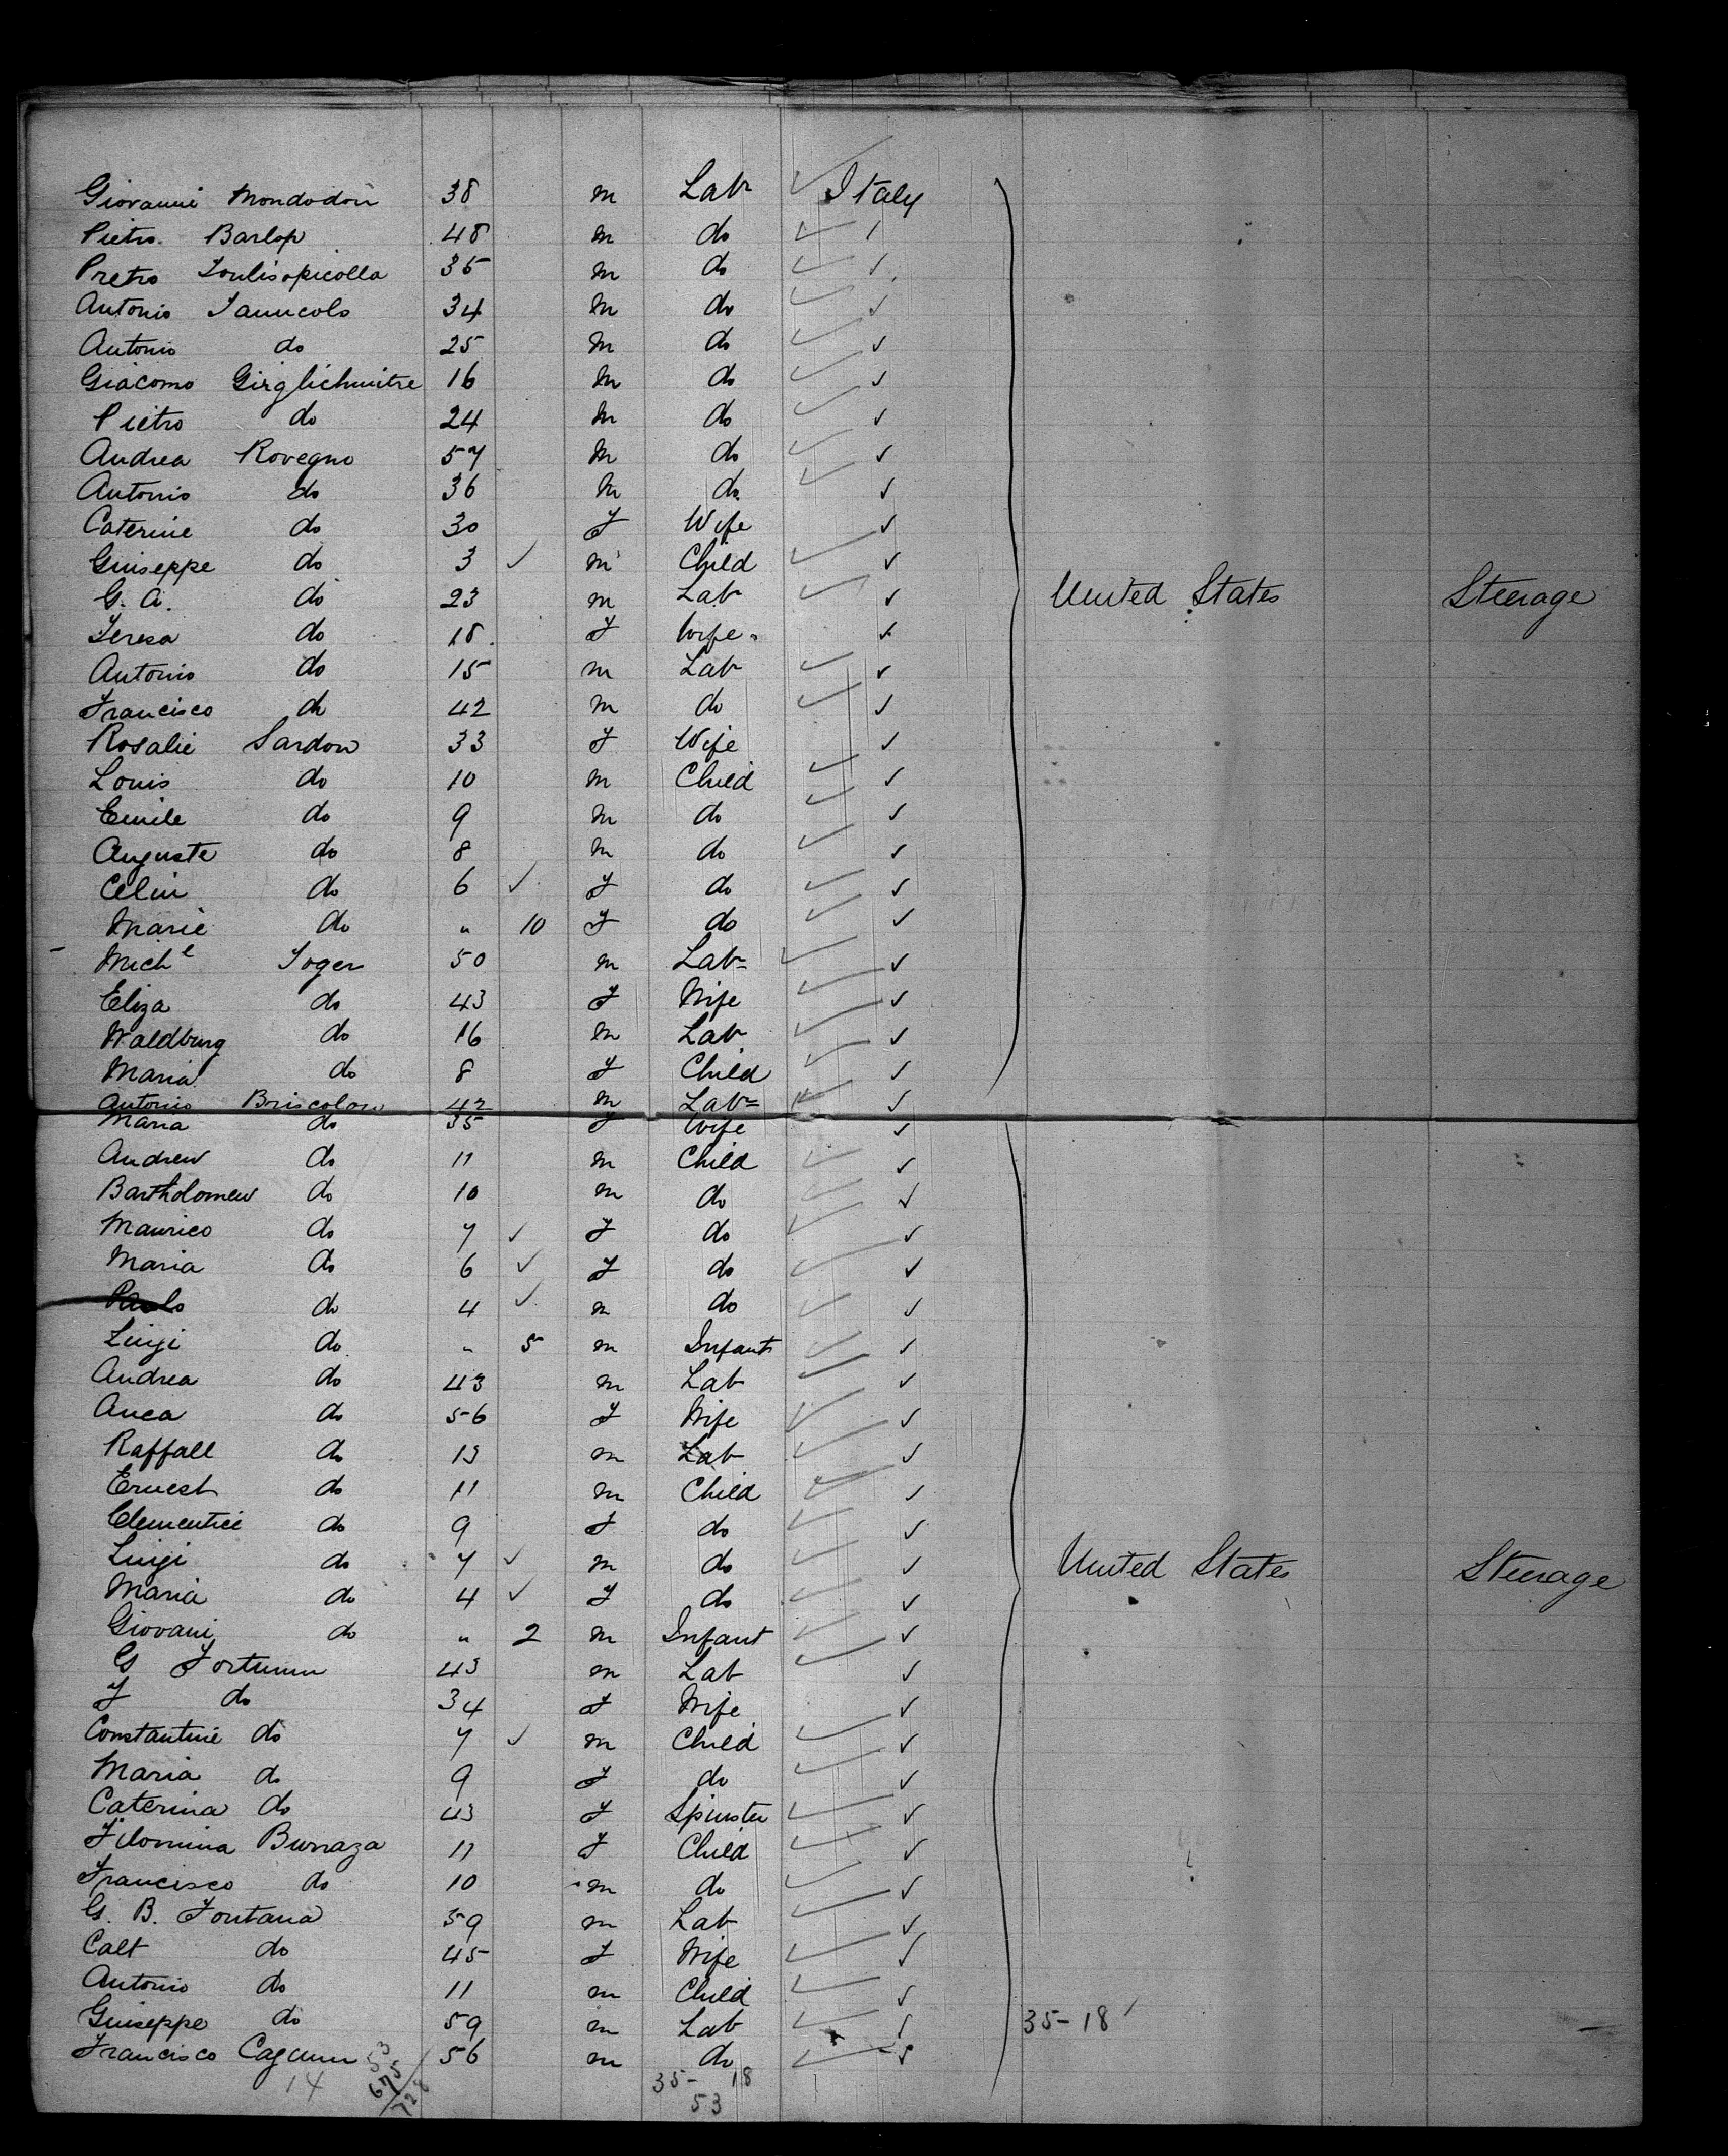 Giovanni Mondodori 38 m Lab Italy
Pietro Barlop 48 m do
Pretro 35 m do
Antonio Iannicolo 34 m do
Antonio do 25 m do
Giacomo 16 m do
Pietro do 24 m do
Andrea Rovegno 57 m do
Antonio do 36 m do
Caterine do 30 F Wife
Guiseppe do 3 m Child
G. A. do 23 m Lab United States Steerage
Teresa do 18 F Wife
Antonio do 15 m Lab
Francisco do 42 m do
Rosalie Sardou 33 F Wife
Louis do 10 m Child
Emile do 9 m do
Auguste do 8 m do
Celin do 6 F do
Marie do " 10 F do
Michl Soger 50 m Lab
Eliza do 43 F Wife
Waldburg do 16 m Lab
Maria do 8 F Child
Antonio Briscolow 42 m Lab
Maria do 35 F Wife
Andrew do 11 m Child
Bartholomew do 10 m do
Maurico do 7 F do
Maria do 6 F do
Paolo do 4 m do
Luigi do " 5 m Infant
Andrea do 43 m Lab
Anea do 56 F Wife
Raffall do 13 m Lab
Ernest do 11 m Child
Clementice do 9 F do
Luigi do 7 m do United States Steerage
Maria do 4 F do
Giovani do " 2 m Infant
G 43 m Lab
F do 34 F Wife
Constantine do 7 m Child
Maria do 9 F do
Caterina do 43 F Spinster
Filomina Burraza 11 F Child
Francisco do 10 m do
G. B. Fontana 39 m Lab
Calt do 45 F Wife
Antonio do 11 m Child
Guiseppe do 59 m Lab 35-18
Francisco Cagaun 56 m do
14 53 675 728 35-18
53